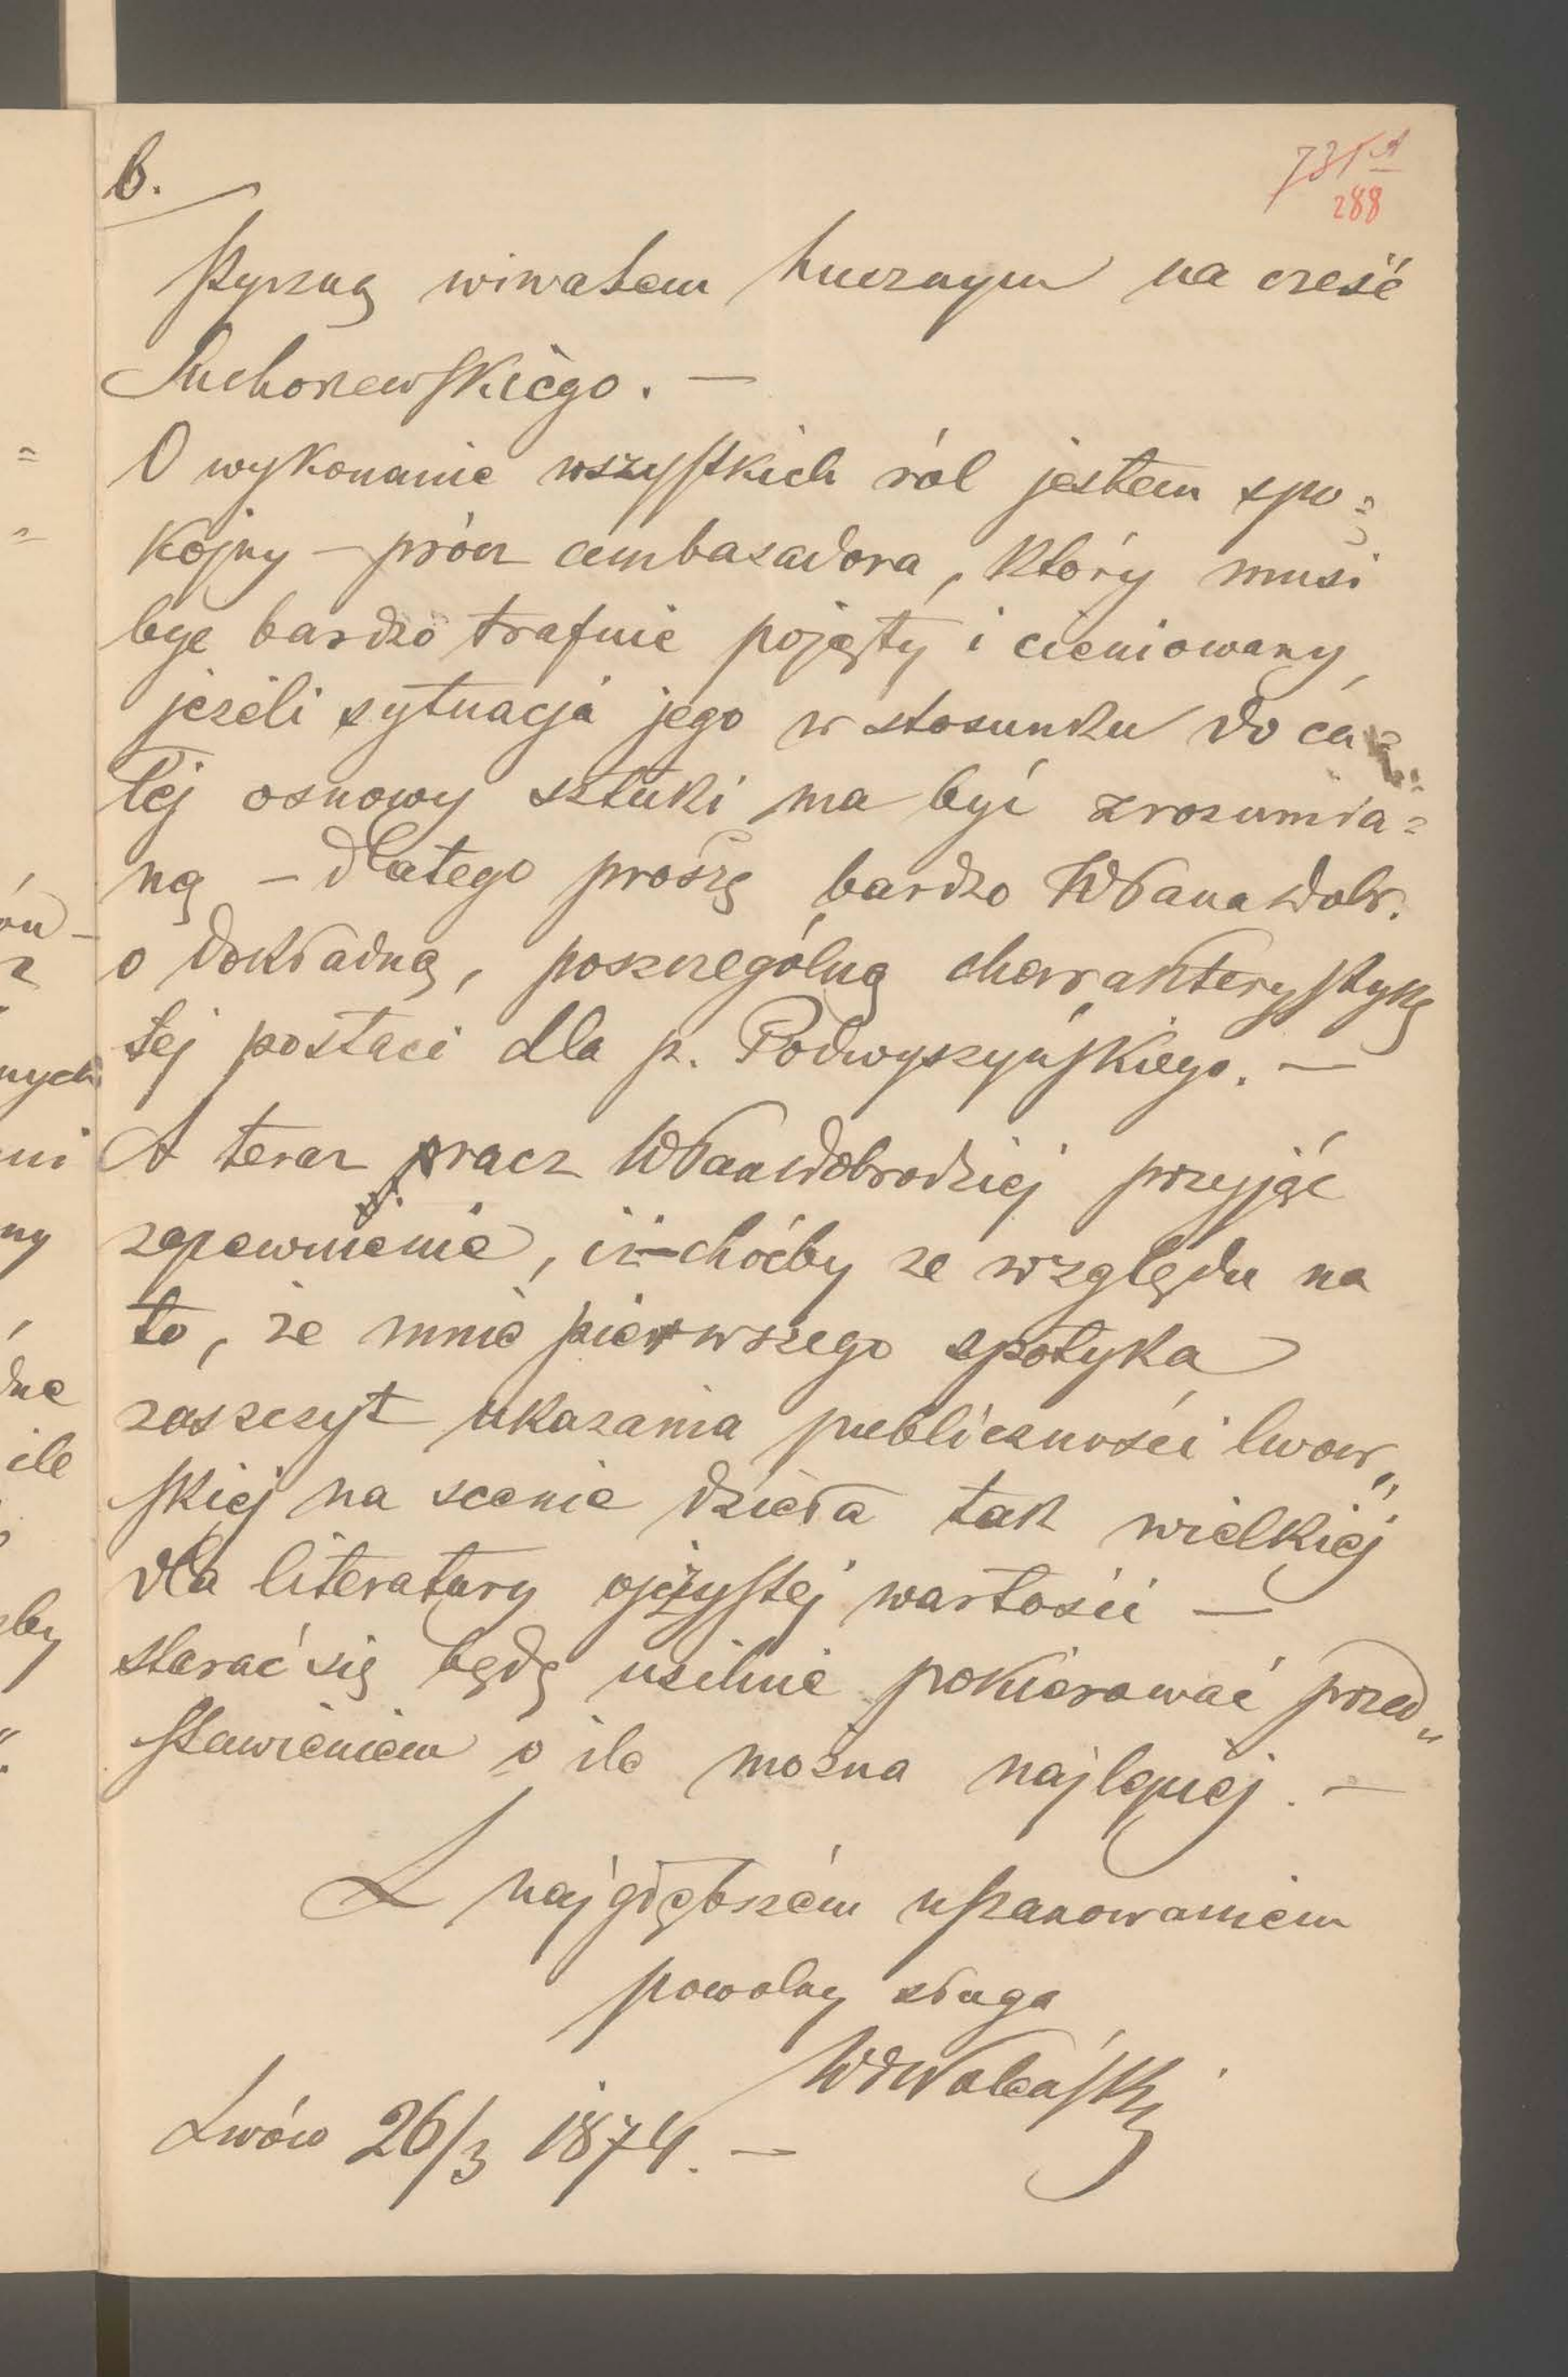 6.
288
styczną wiwatem hucznym na cześć
Suchorzewskiego. —
O wykonanie wszystkich ról jestem spo=
kojny — prócz ambasadora, który musi
być bardzo trafnie pojęty i cieniowany,
jeżeli sytuacja jego w stosunku do ca=
łéj osnowy sztuki ma być zrozumia=
ną — dlatego proszę bardzo WPana Dobr.
o dokładną, poszczególną charakterystykę
tej postaci dla p. Podwyszyńskiego. —
A teraz racz WPan Dobrodziej przyjąć
zapewnienie, iż choćby ze względu na
to, że mnie pierwszego spotyka
zaszczyt ukazania publiczności lwow„
skiej na scenie dzieła tak wielkiej
dla literatury ojczystej wartości —
starać się będę usilnie pokierować przed„
stawieniem o ile można najlepiej. —
Z najgłębszém uszanowaniem
powolny sługa
Lwów 26/3 1874. —